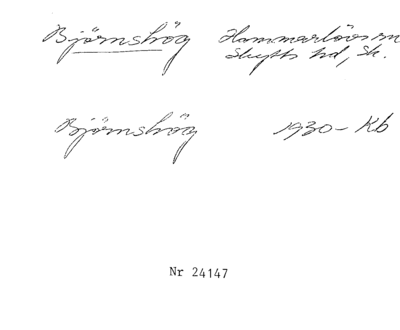 Björnshög Hammarlövs sn
Skytts hd, Sk.
Björnshög 1930- Kb
Nr 24147